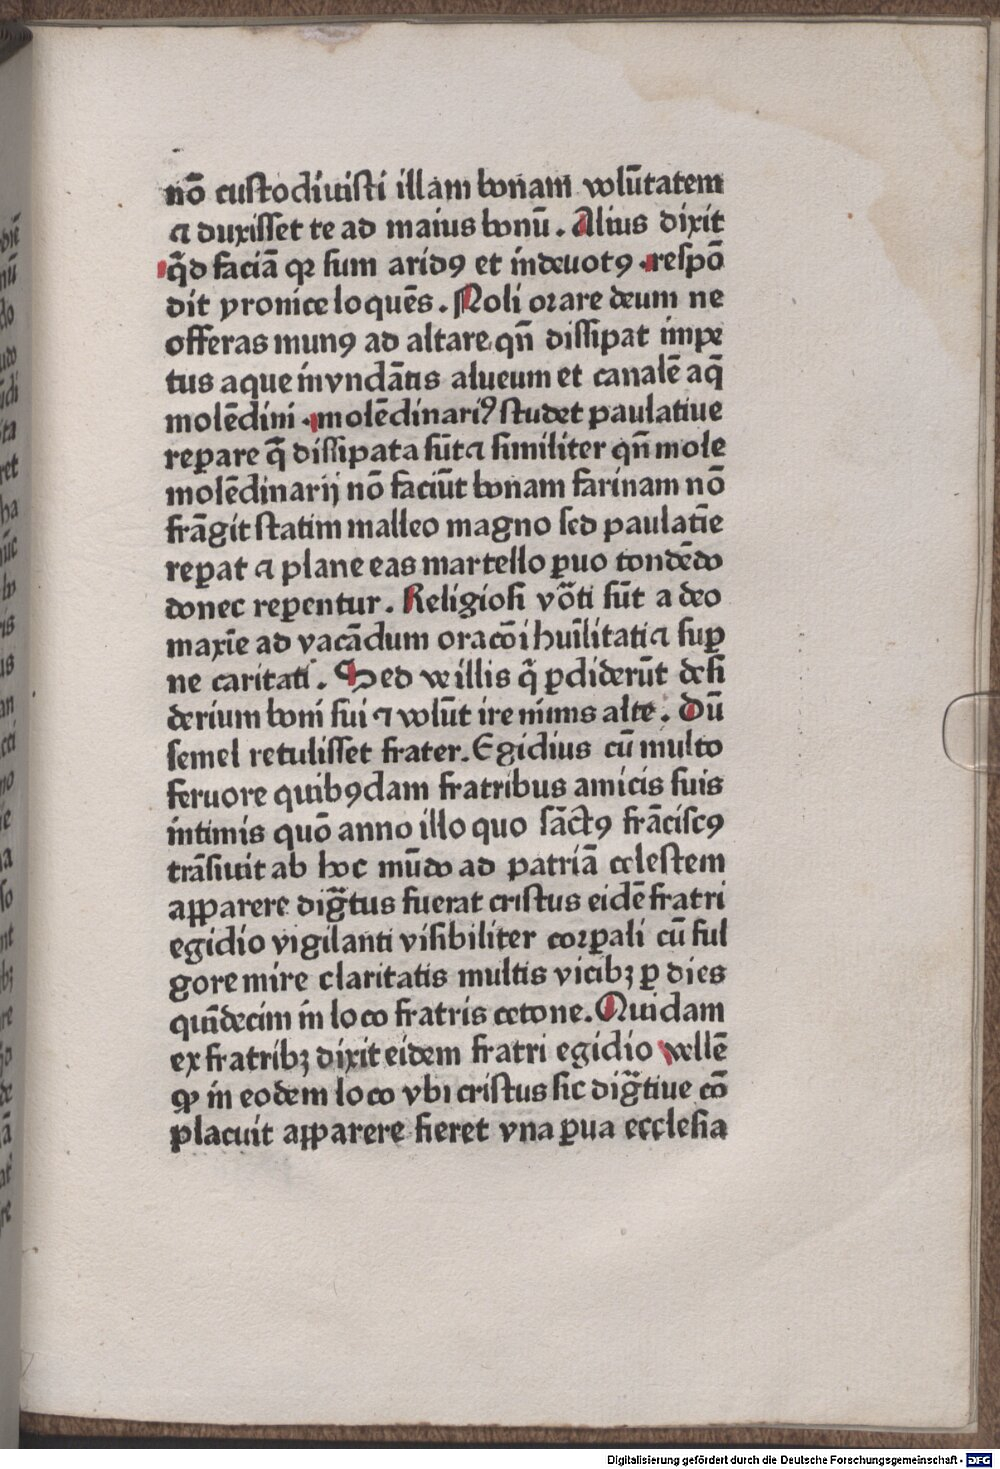 nō custodiuisti illam bonam volūtatem
⁊ duxisset te ad maius bonū. Alius dixit
q̄d faciā qꝛ sum aridꝰ et indeuotꝰ. respō
dit yronice loquēs. Noli orare deum ne
offeras munꝰ ad altare qn̄ dissipat impe
tus aque invndātis alueum et canalē aq̄
molēdini. molēdinariꝰ studet paulatiue
reꝑare q̄ dissipata sūt ⁊ similiter qn̄ mole
molēdinarij nō faciūt bonam farinam nō
frāgit statim malleo magno sed paulatīe
reꝑat ⁊ plane eas martello ꝑuo tondēdo
donec reꝑentur. Religiosi vo̅ti sūt a deo
maxīe ad vacādum oracōi huīlitati ⁊ suꝑ
ne caritati. Sed ve illis q̄ ꝑdiderūt desi
derium boni sui ⁊ volūt ire nimis alte. Dū
semel retulisset frater. Egidius cū multo
feruore quibꝰdam fratribus amicis suis
intimis quō anno illo quo sāctꝰ frāciscꝰ
trāsiuit ab hoc mūdo ad patriā celestem
apparere dig̅tus fuerat cristus eidē fratri
egidio vigilanti visibiliter corꝑali cū ful
gore mire claritatis multis vicibꝫ ꝑ dies
quīdecim in loco fratris cetone. Quidam
ex fratribꝫ dixit eidem fratri egidio vellē
ꝙ in eodem loco vbi cristus sic dig̅tiue cō
placuit apparere fieret vna ꝑua ecclesia
Digitalisierung gefördert durch die Deutsche Forschungsgemeinschaft - DFG